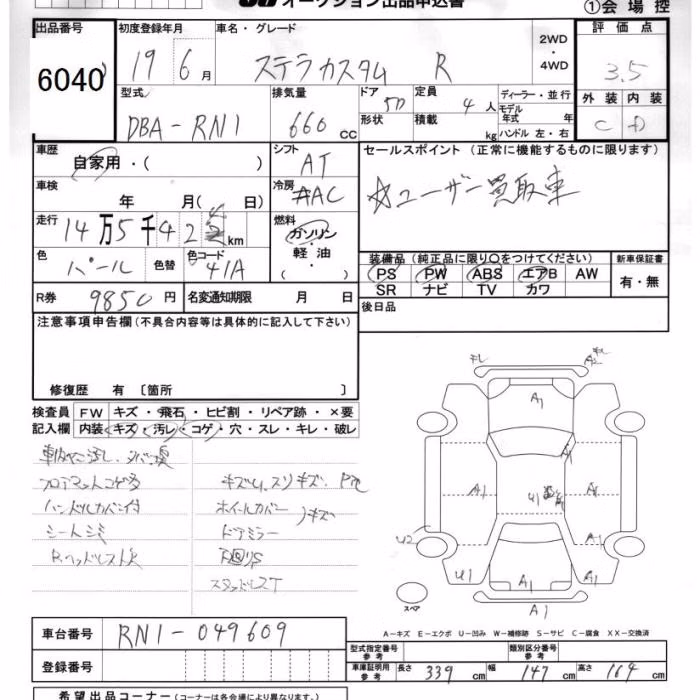 オークション出品申込書
①会場控
出品番号 初度登録年月 車名・グレード 評価点
6040 19年6月 ステラカスタム R 2WD・4WD 3.5
型式 排気量 ドア 定員 ディーラー・並行
DBA-RN1 660cc 5D 4人 モデル年式 年
形状 積載 kg ハンドル 左・右
外装 内装
C D
車歴 シフト セールスポイント (正常に機能するものに限ります)
自家用・( ) AT
☆ユーザー買取車
車検 冷房
年 月( 日) AAC
走行 燃料
14万5千42 km ガソリン・軽油・( )
色 色替 色コード
パール 41A
装備品 (純正品に限り○をつけてください) 新車保証書
PS PW ABS エアB AW 有・無
SR ナビ TV カワ
R券 9850円 名変通知期限 月 日
後日品
注意事項申告欄(不具合内容等は具体的に記入して下さい)
修復歴 有 〔箇所 〕
検査員記入欄 FW キズ・飛石・ヒビ割・リペア跡・×要
内装 キズ・汚レ・コゲ・穴・スレ・キレ・破レ
フロアマットコゲ多
ハンドルカバー付
シートシミ
ホイールカバー キズ
ドアミラー
スタッドレス
A1
A1
A1
A1
U1
A1
U2
A1
U1
A1
A1
A1
スペア
A-キズ E-エクボ U-凹み W-補修跡 S-サビ C-腐食 XX-交換済
車台番号 RN1-049609
登録番号
型式指定番号 参考 類別区分番号 参考
車庫証明用 参考 長さ 339cm 幅 147cm 高さ 164cm
希望出品コーナー(コーナーは各会場により異なります。)